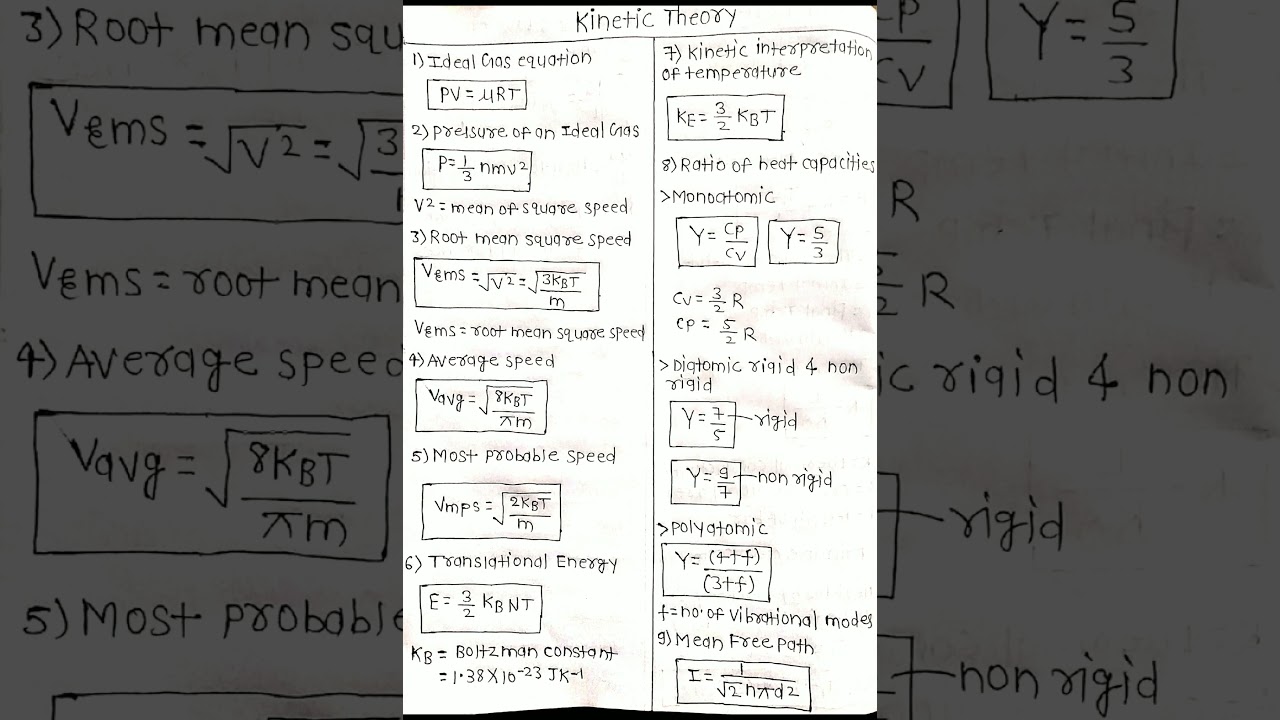 Kinetic Theory
1) Ideal Gas equation
PV = μRT
2) Pressure of an Ideal Gas
P = 1/3 nmv²
V² = mean of square speed
3) Root mean square speed
Vrms = √V² = √(3KBT/m)
Vrms = root mean square speed
4) Average speed
Vavg = √(8KBT/πm)
5) Most Probable Speed
Vmps = √(2KBT/m)
6) Translational Energy
E = 3/2 KBNT
KB = Boltzman constant
= 1.38 X 10⁻²³ JK⁻¹
7) Kinetic interpretation
of temperature
KE = 3/2 KBT
8) Ratio of heat capacities
> Monoatomic
γ = Cp/Cv γ = 5/3
Cv = 3/2 R
Cp = 5/2 R
> Diatomic rigid & non
rigid
γ = 7/5 — rigid
γ = 9/7 — non rigid
> Polyatomic
γ = (4+f)/(3+f)
f = no. of Vibrational modes
9) Mean Free Path
I = 1/√2 nπd²
3) Root mean squ
Vrms = √V² = √3
Vrms = root mean
4) Average speed
Vavg = √(8KBT/πm)
5) Most probable
Cp/Cv γ = 5/3
R
R
ic rigid & non
rigid
non rigid